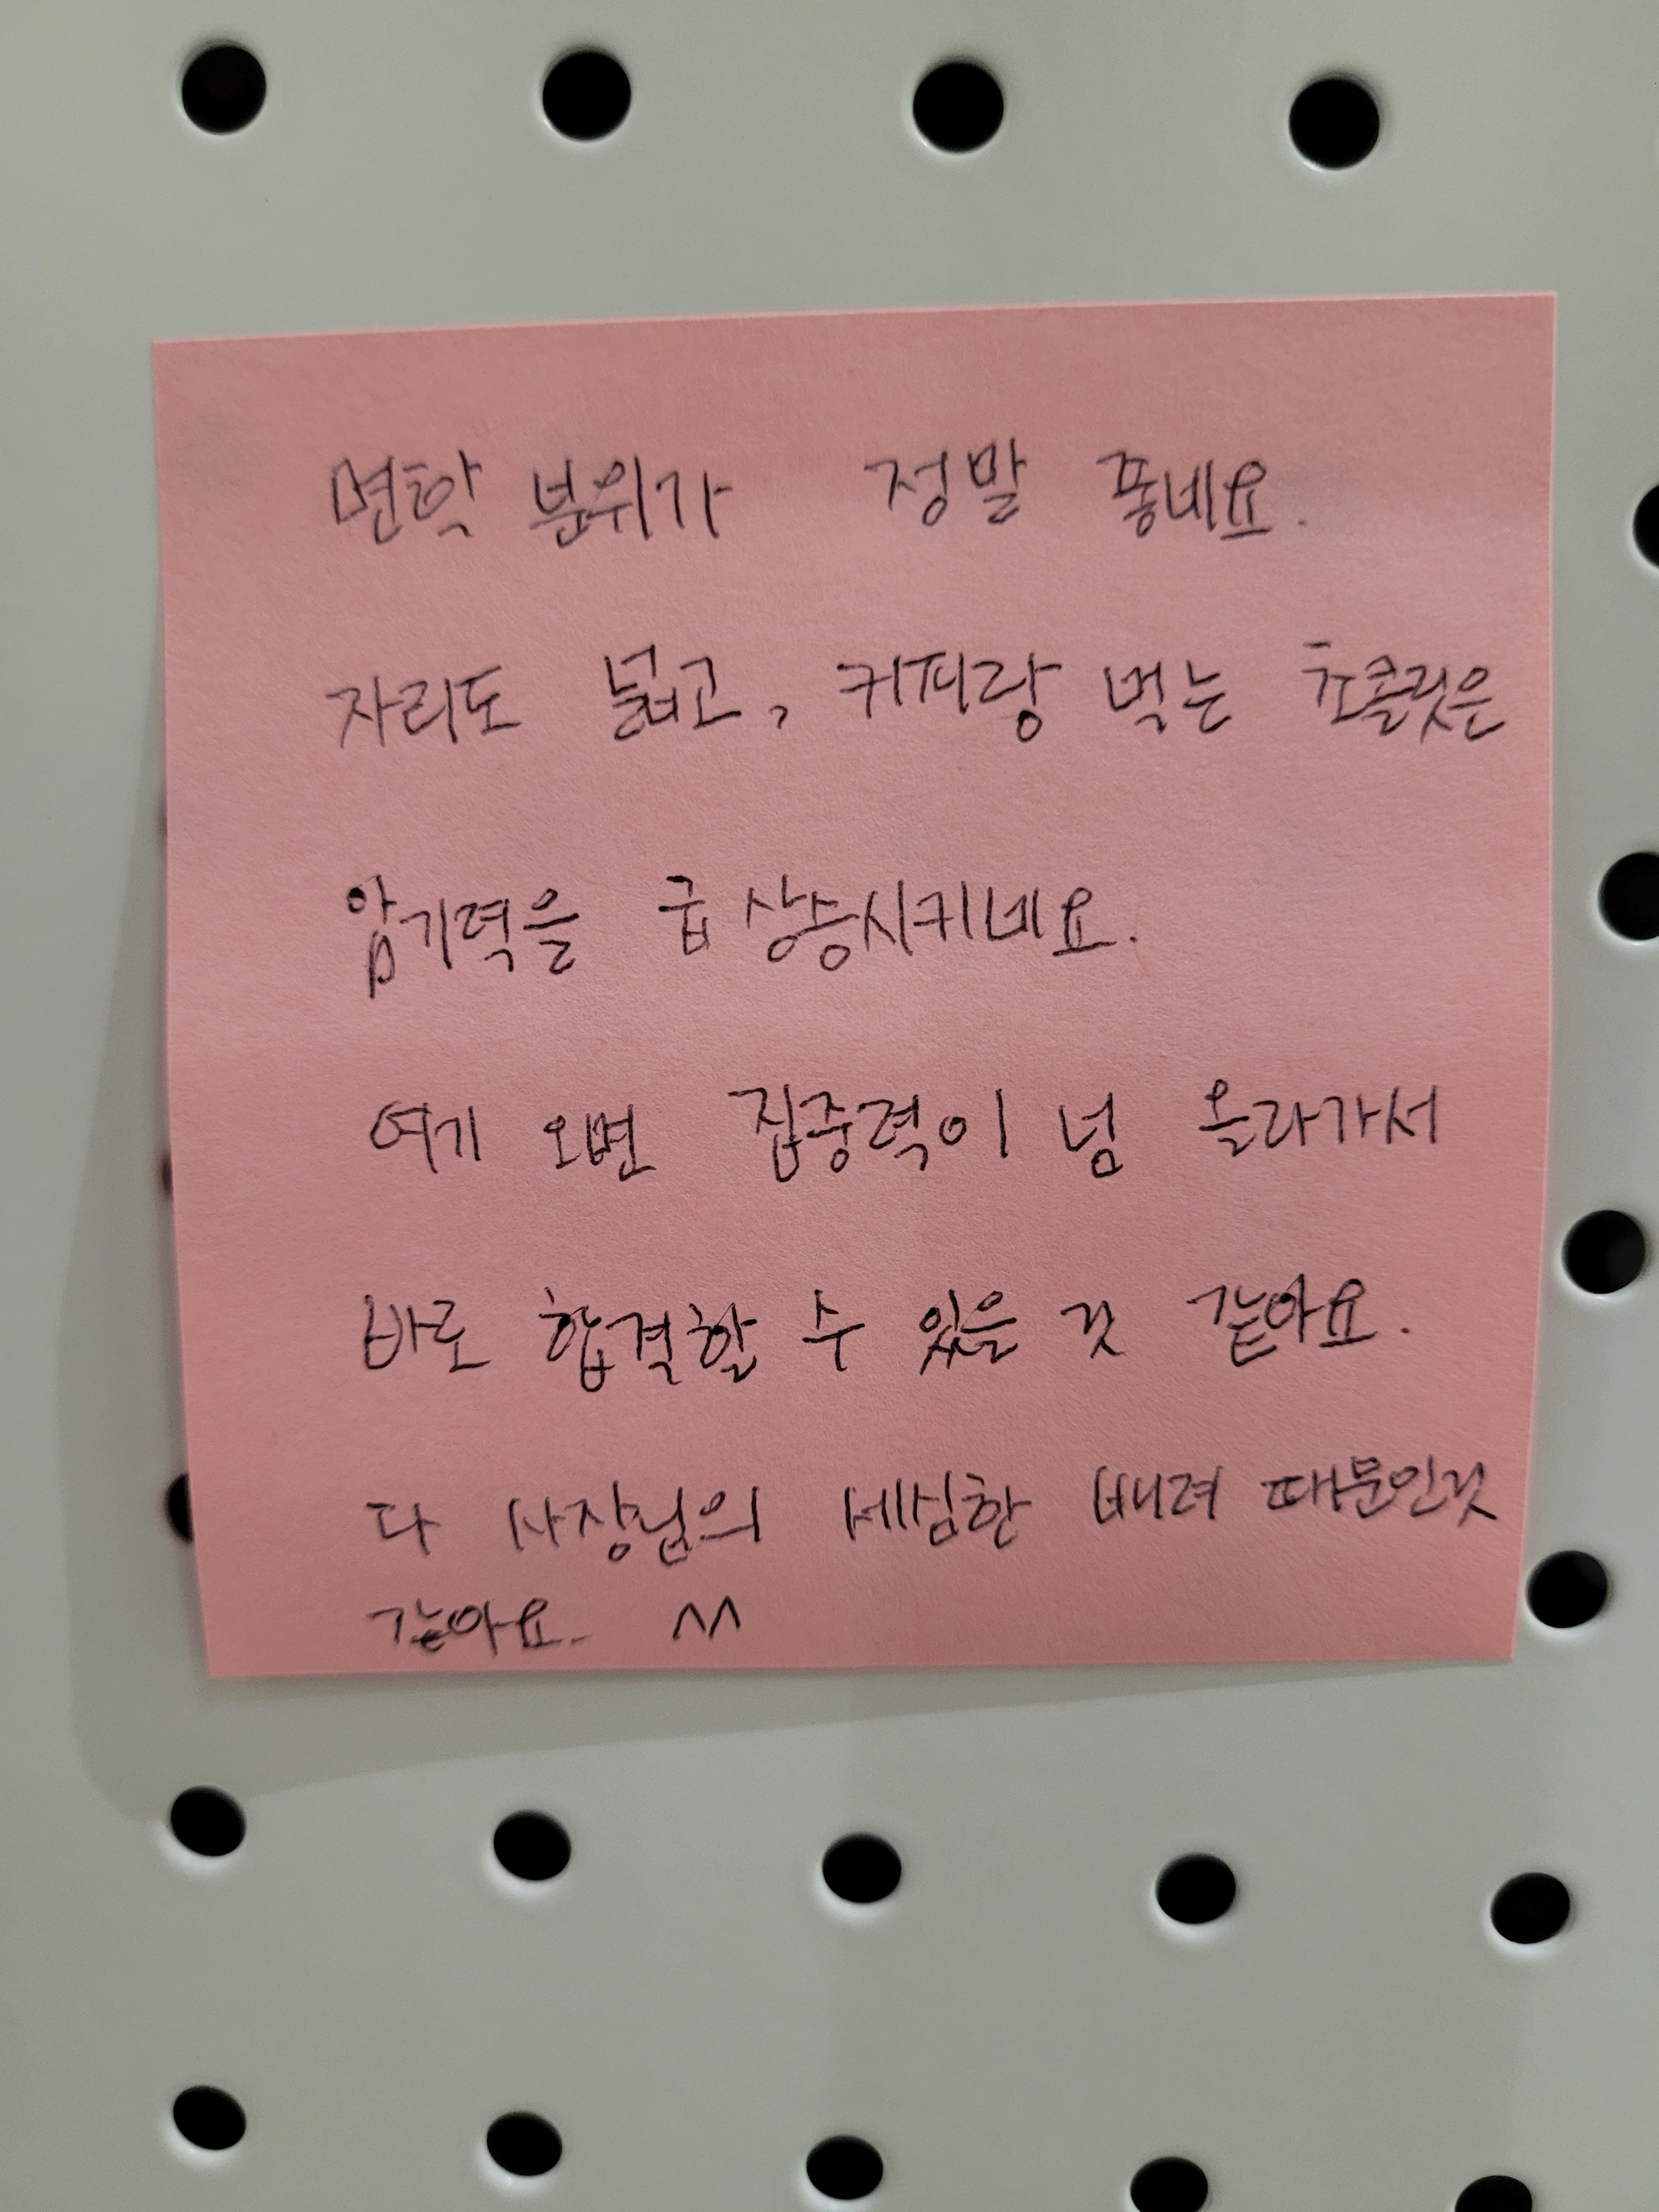 면학 분위가 정말 좋네요.
자리도 넓고, 커피랑 먹는 초콜릿은
암기력을 급 상승시키네요.
여기 오면 집중력이 넘 올라가서
바로 합격할 수 있을 것 같아요.
다 사장님의 세심한 배려 때문인것
같아요. ^^